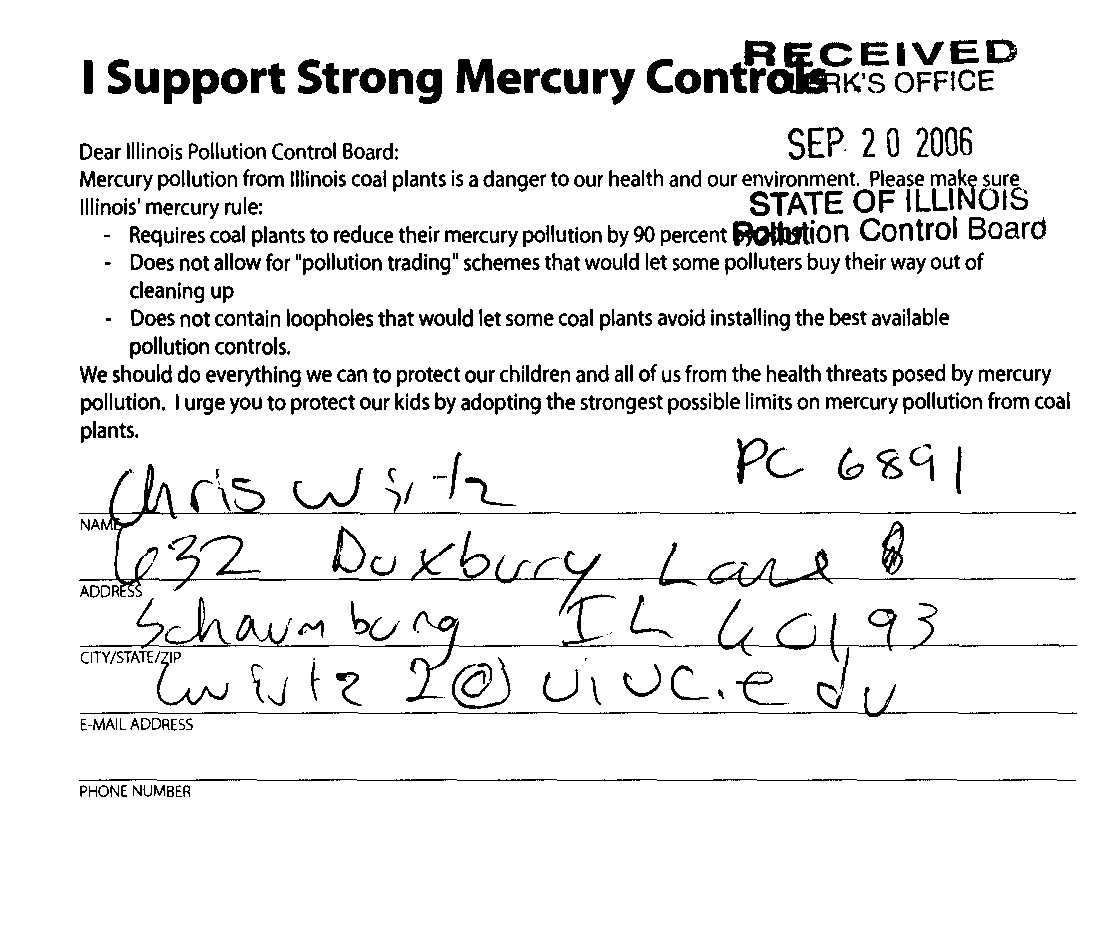 I Support Strong Mercury Controls
RECEIVED
CLERK'S OFFICE
SEP 20 2006
STATE OF ILLINOIS
Pollution Control Board
Dear Illinois Pollution Control Board:
Mercury pollution from Illinois coal plants is a danger to our health and our environment. Please make sure
Illinois' mercury rule:
- Requires coal plants to reduce their mercury pollution by 90 percent
- Does not allow for "pollution trading" schemes that would let some polluters buy their way out of
cleaning up
- Does not contain loopholes that would let some coal plants avoid installing the best available
pollution controls.
We should do everything we can to protect our children and all of us from the health threats posed by mercury
pollution. I urge you to protect our kids by adopting the strongest possible limits on mercury pollution from coal
plants.
PC 6891
Chris Wirtz
NAME
632 Duxbury Lane
ADDRESS
Schaumburg IL 60193
CITY/STATE/ZIP
cwirtz2@uiuc.edu
E-MAIL ADDRESS
PHONE NUMBER